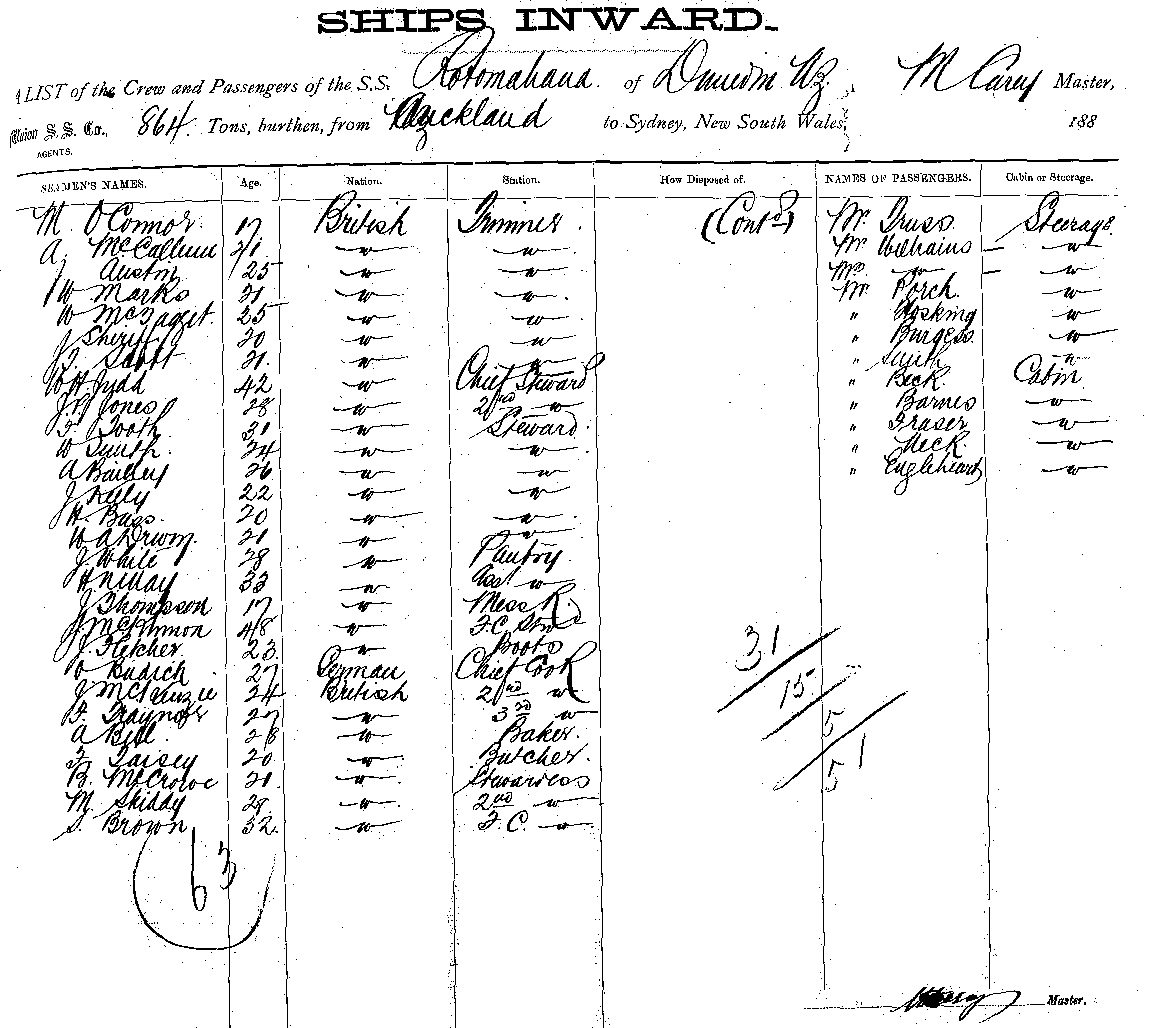 SHIPS INWARD.
A LIST of the Crew and Passengers of the S.S. Rotomahana of Dunedin NZ, M Carey Master,
Union S. S. Co., 864 Tons, burthen, from Auckland to Sydney, New South Wales, 188
AGENTS.
SEAMEN'S NAMES. Age. Nation. Station. How Disposed of. NAMES OF PASSENGERS. Cabin or Steerage.
M. O'Connor 17 British Trimmer (Contd) Mr. Truss Steerage
A. McCallum 21 " " Mr. Williams — "
J Austin 25 " " Mrs " — "
W Marks 21 " " Mr Porch "
W 25 " " " Hosking "
J Sheriff 20 " " " Burgess "
Scott 21 " " " Smith "
W.H. Judd 42 " Chief Steward " Beck Cabin
Jones 28 " 2nd " " Barnes "
F. Tooth 31 " Steward " Fraser "
W Smith 24 " " " Meck "
A Bailey 26 " " " Engleheart "
J Kelly 22 " "
H. Bass 20 " "
W A 21 " "
J White 28 " Pantry
33 " Asst "
J Thompson 17 " Mess R.
J McKinnon 48 " F.C. Stwd
J. Fletcher 23 " Boots
27 German Chief Cook
J McKenzie 24 British 2nd "
Traynor 27 " 3rd "
A Bell 28 " Baker
F. Daisey 20 " Butcher
B. McCrowe 21 " Stewardess
M. Skiddy 28 " 2nd "
S. Brown 32 " F.C. "
31
15
5
51
63
Master.